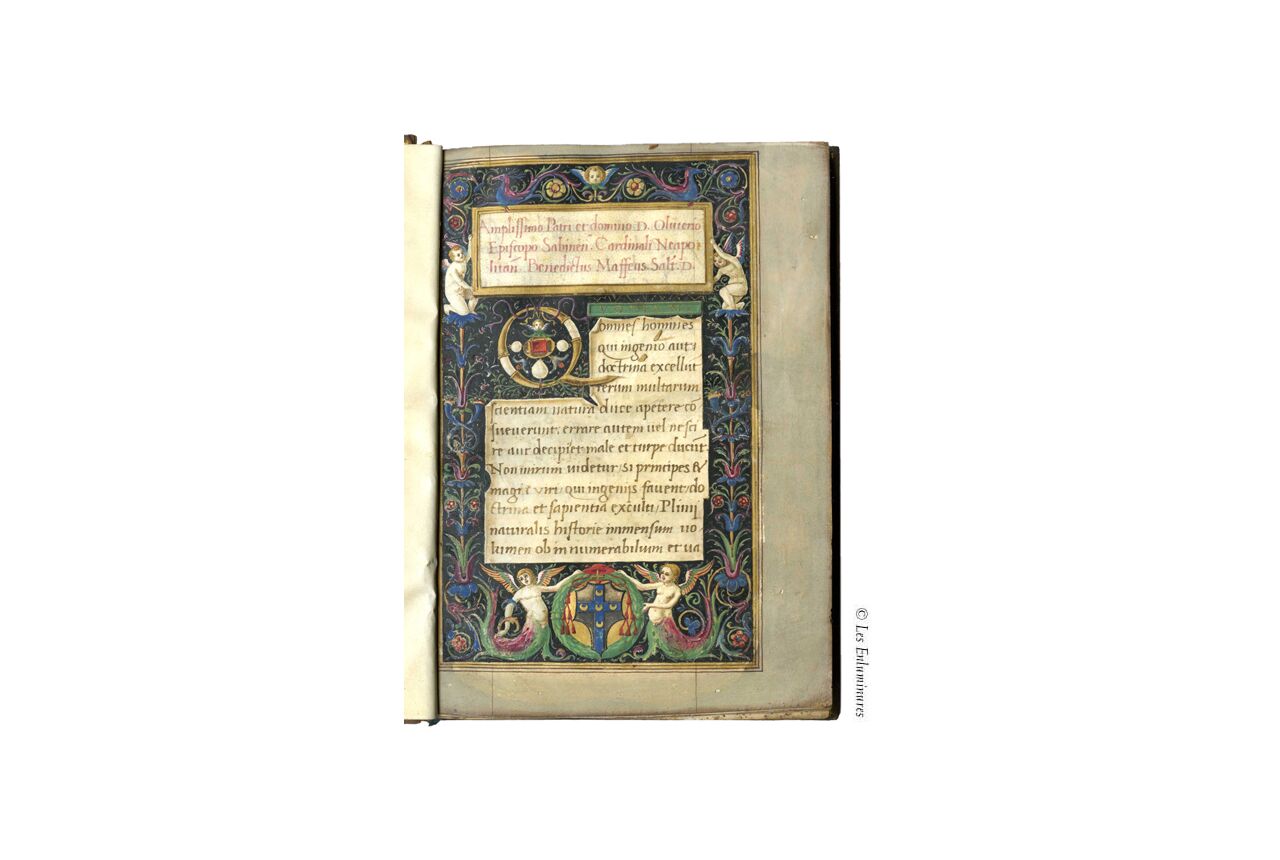 Amplissimo Patri et domino D. Oliuerio
Episcopo Sabinēn̄. Cardinali Neapo
litan̄. Benedictus Maffeus Salt. D.
omnes homines
qui ingenio aut
doctrina excellūt
rerum multarum
scientiam natura duce apetere cō
sueuerunt: errare autem uel nesci
re aut decipi et male et turpe ducūt.
Non mirum uidetur / si principes &
magni uiri / qui ingenijs fauent / do
ctrina et sapientia exculti / Plinij
naturalis historie immensum uo
lumen ob innumerabilium et ua
© Les Enluminures